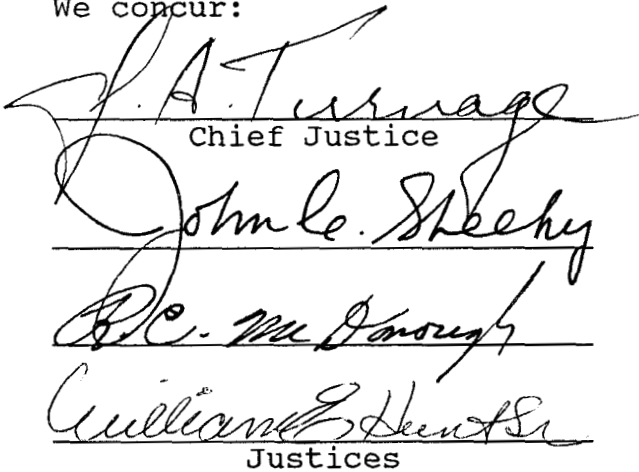 We concur:
J. A. Turnage
Chief Justice
John C. Sheehy
R. C. McDonough
William E Hunt Sr
Justices